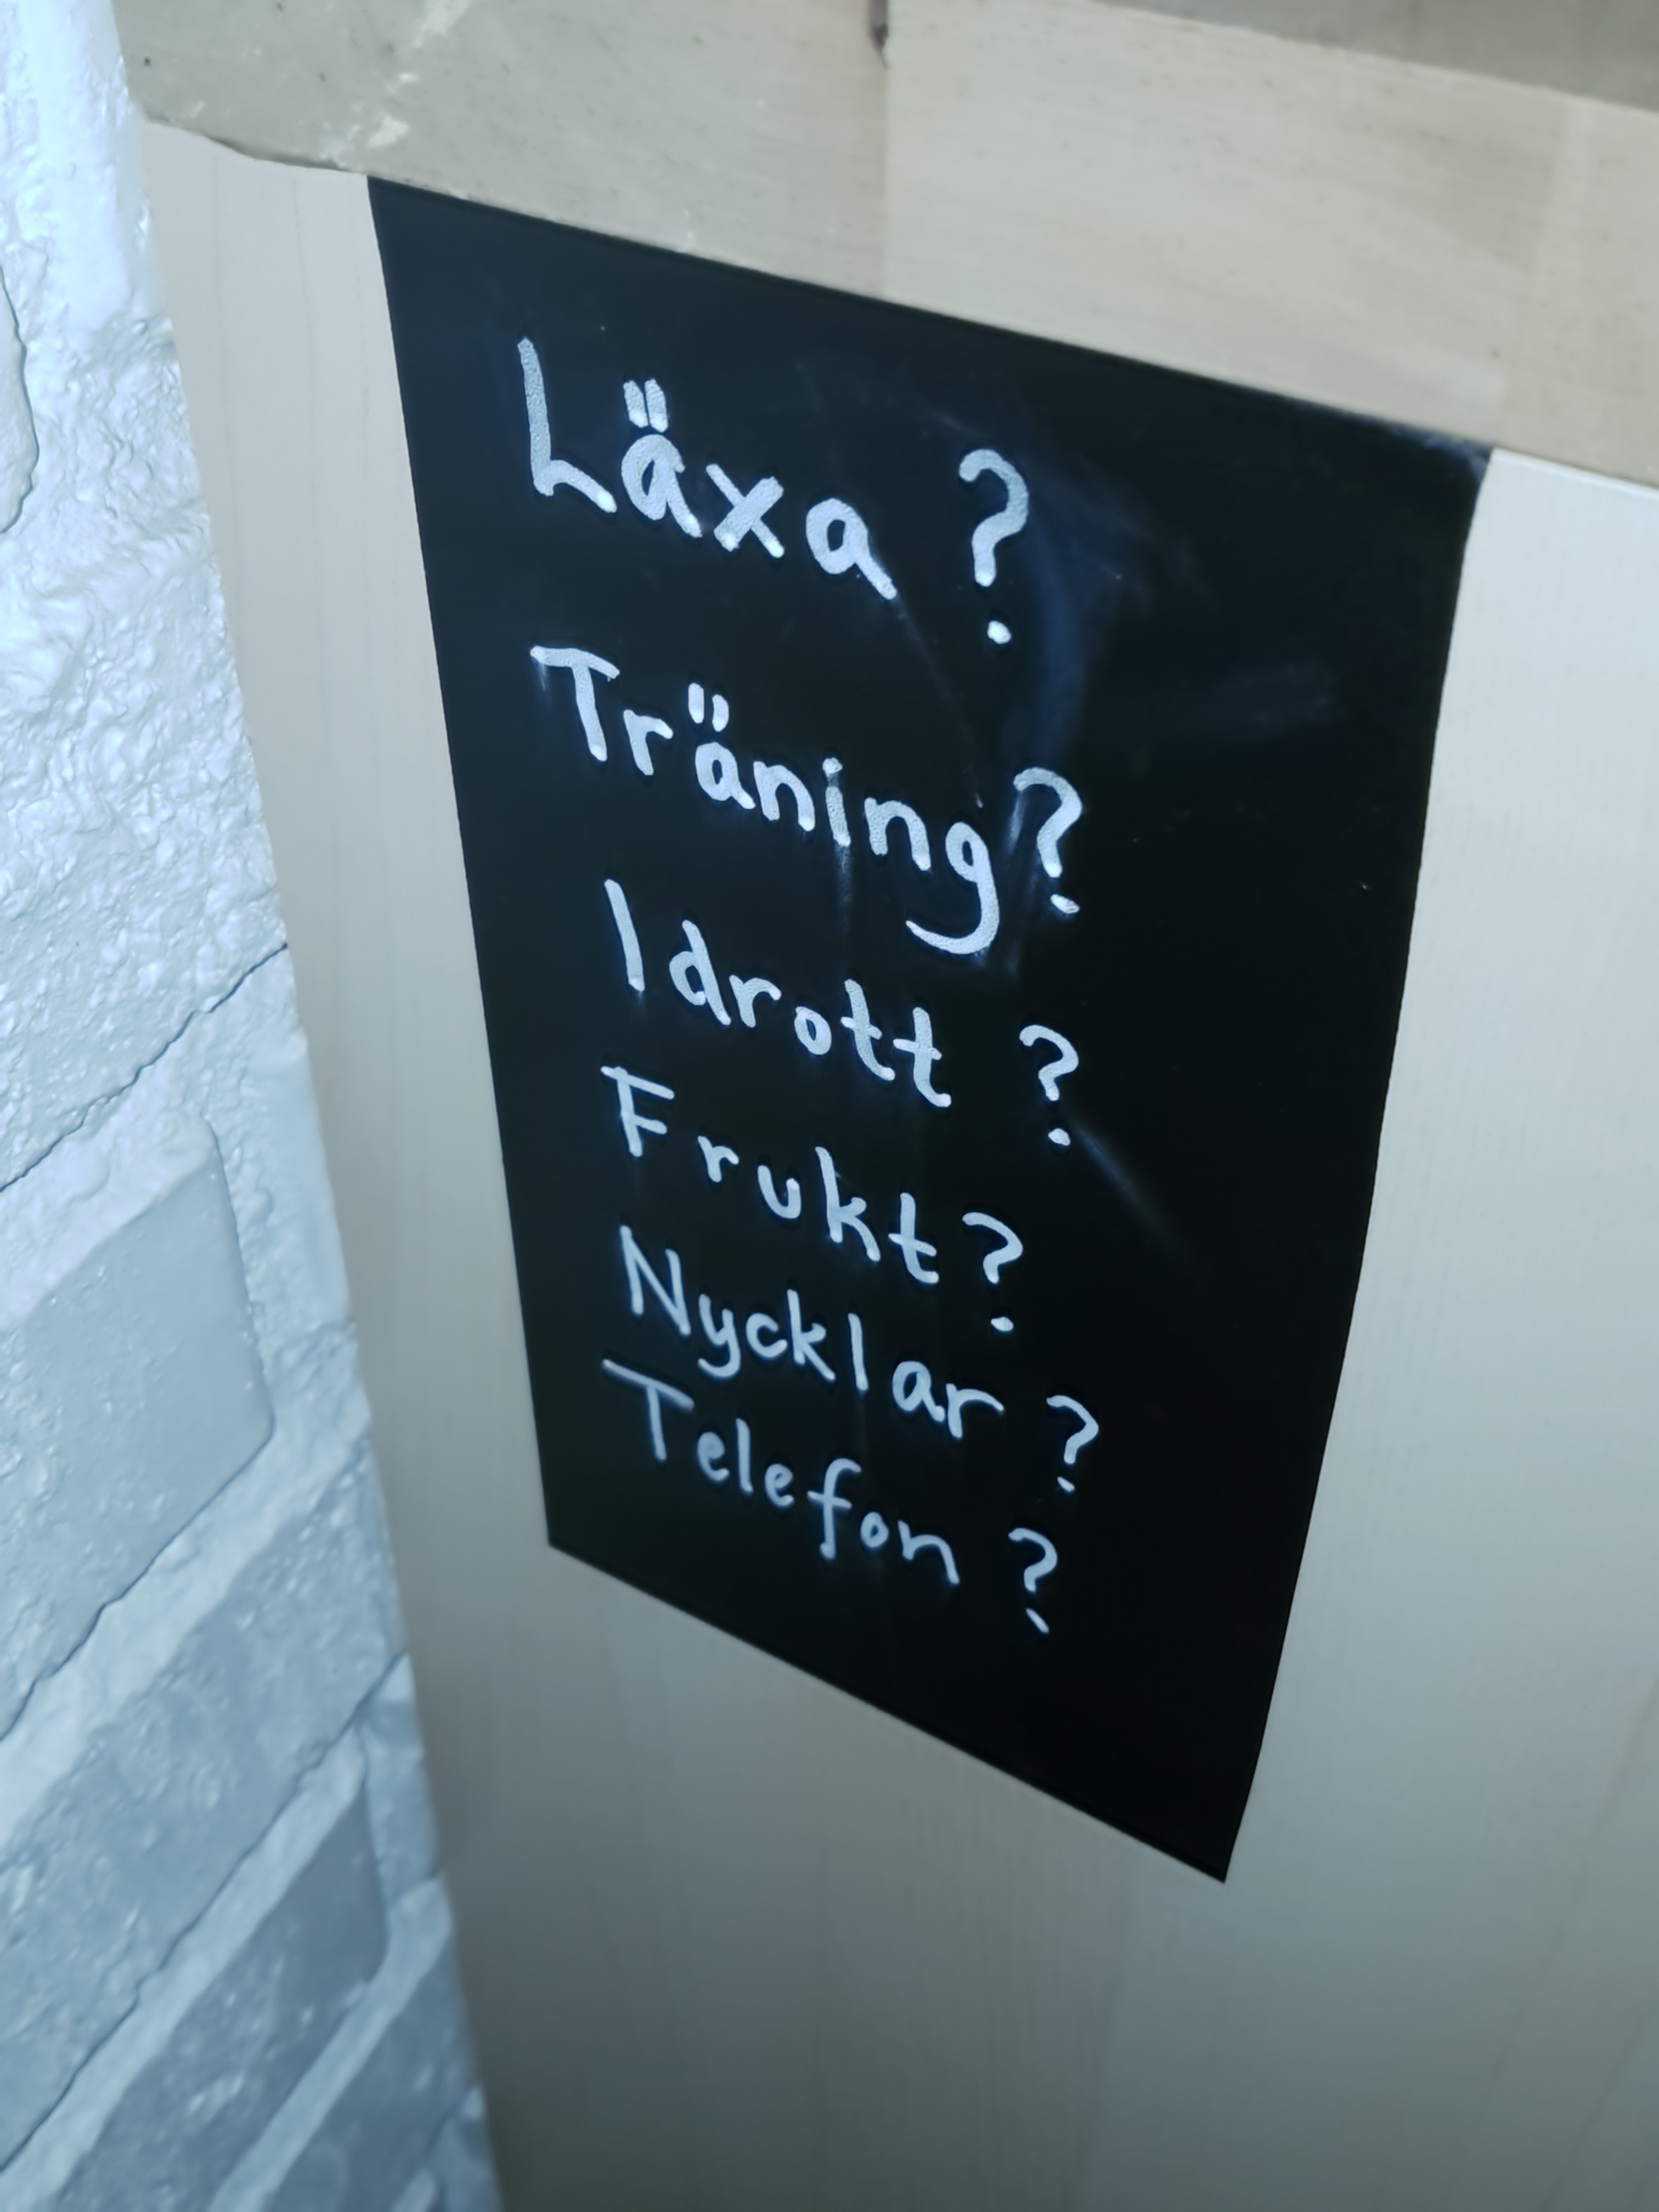 Läxa ?
Träning?
Idrott ?
Frukt?
Nycklar ?
Telefon ?